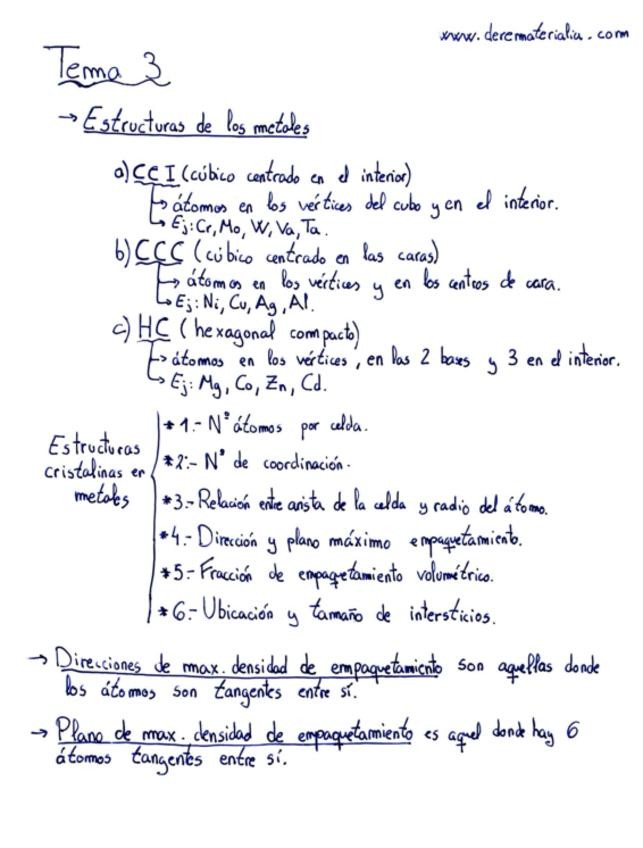 www.derematerialia.com
Tema 3
→ Estructuras de los metales
a) CCI (cúbico centrado en el interior)
↳ átomos en los vértices del cubo y en el interior.
↳ Ej: Cr, Mo, W, Va, Ta.
b) CCC (cúbico centrado en las caras)
↳ átomos en los vértices y en los centros de cara.
↳ Ej: Ni, Cu, Ag, Al.
c) HC (hexagonal compacto)
↳ átomos en los vértices, en las 2 bases y 3 en el interior.
↳ Ej: Mg, Co, Zn, Cd.
Estructuras cristalinas en metales
* 1.- Nº átomos por celda.
* 2.- Nº de coordinación.
* 3.- Relación entre arista de la celda y radio del átomo.
* 4.- Dirección y plano máximo empaquetamiento.
* 5.- Fracción de empaquetamiento volumétrico.
* 6.- Ubicación y tamaño de intersticios.
→ Direcciones de max. densidad de empaquetamiento son aquellas donde
los átomos son tangentes entre sí.
→ Plano de max. densidad de empaquetamiento es aquel donde hay 6
átomos tangentes entre sí.